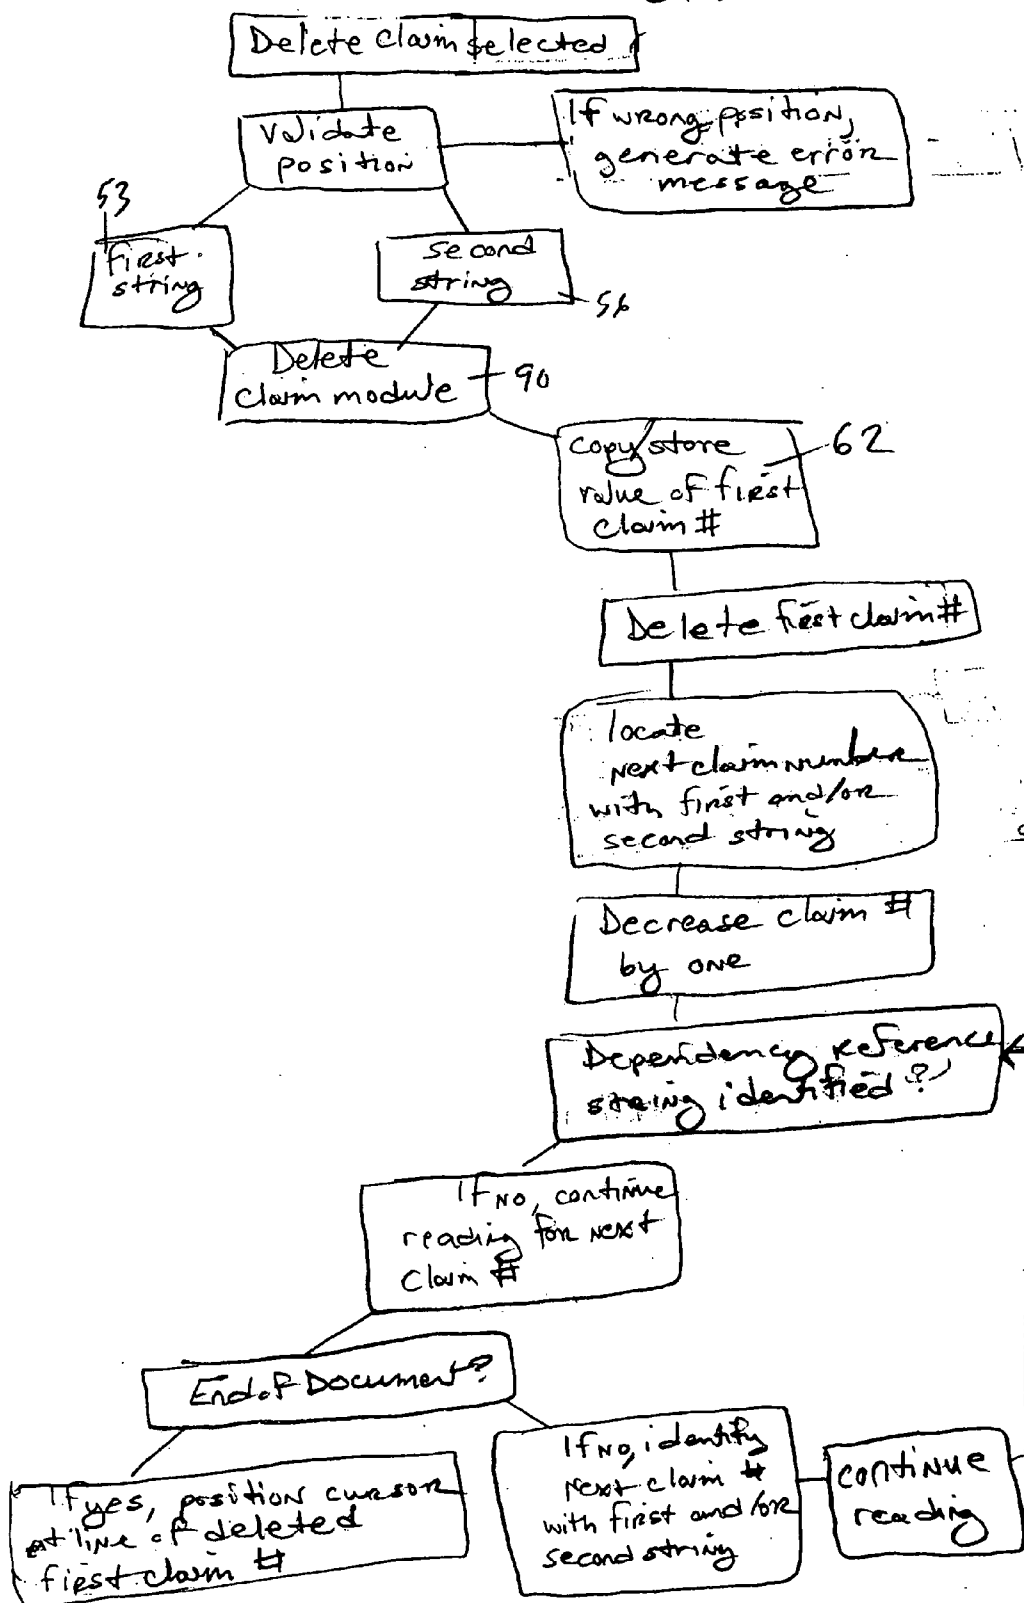 Delete claim selected
Validate
position
If wrong position,
generate error
message
53
first
string
second
string
56
Delete
claim module
90
copy/store
value of first
claim #
62
Delete first claim #
locate
next claim number
with first and/or
second string
Decrease claim #
by one
Dependency reference
string identified?
If no, continue
reading for next
claim #
End of Document?
If yes, position cursor
at line of deleted
first claim #
If no, identify
next claim #
with first and/or
second string
continue
reading